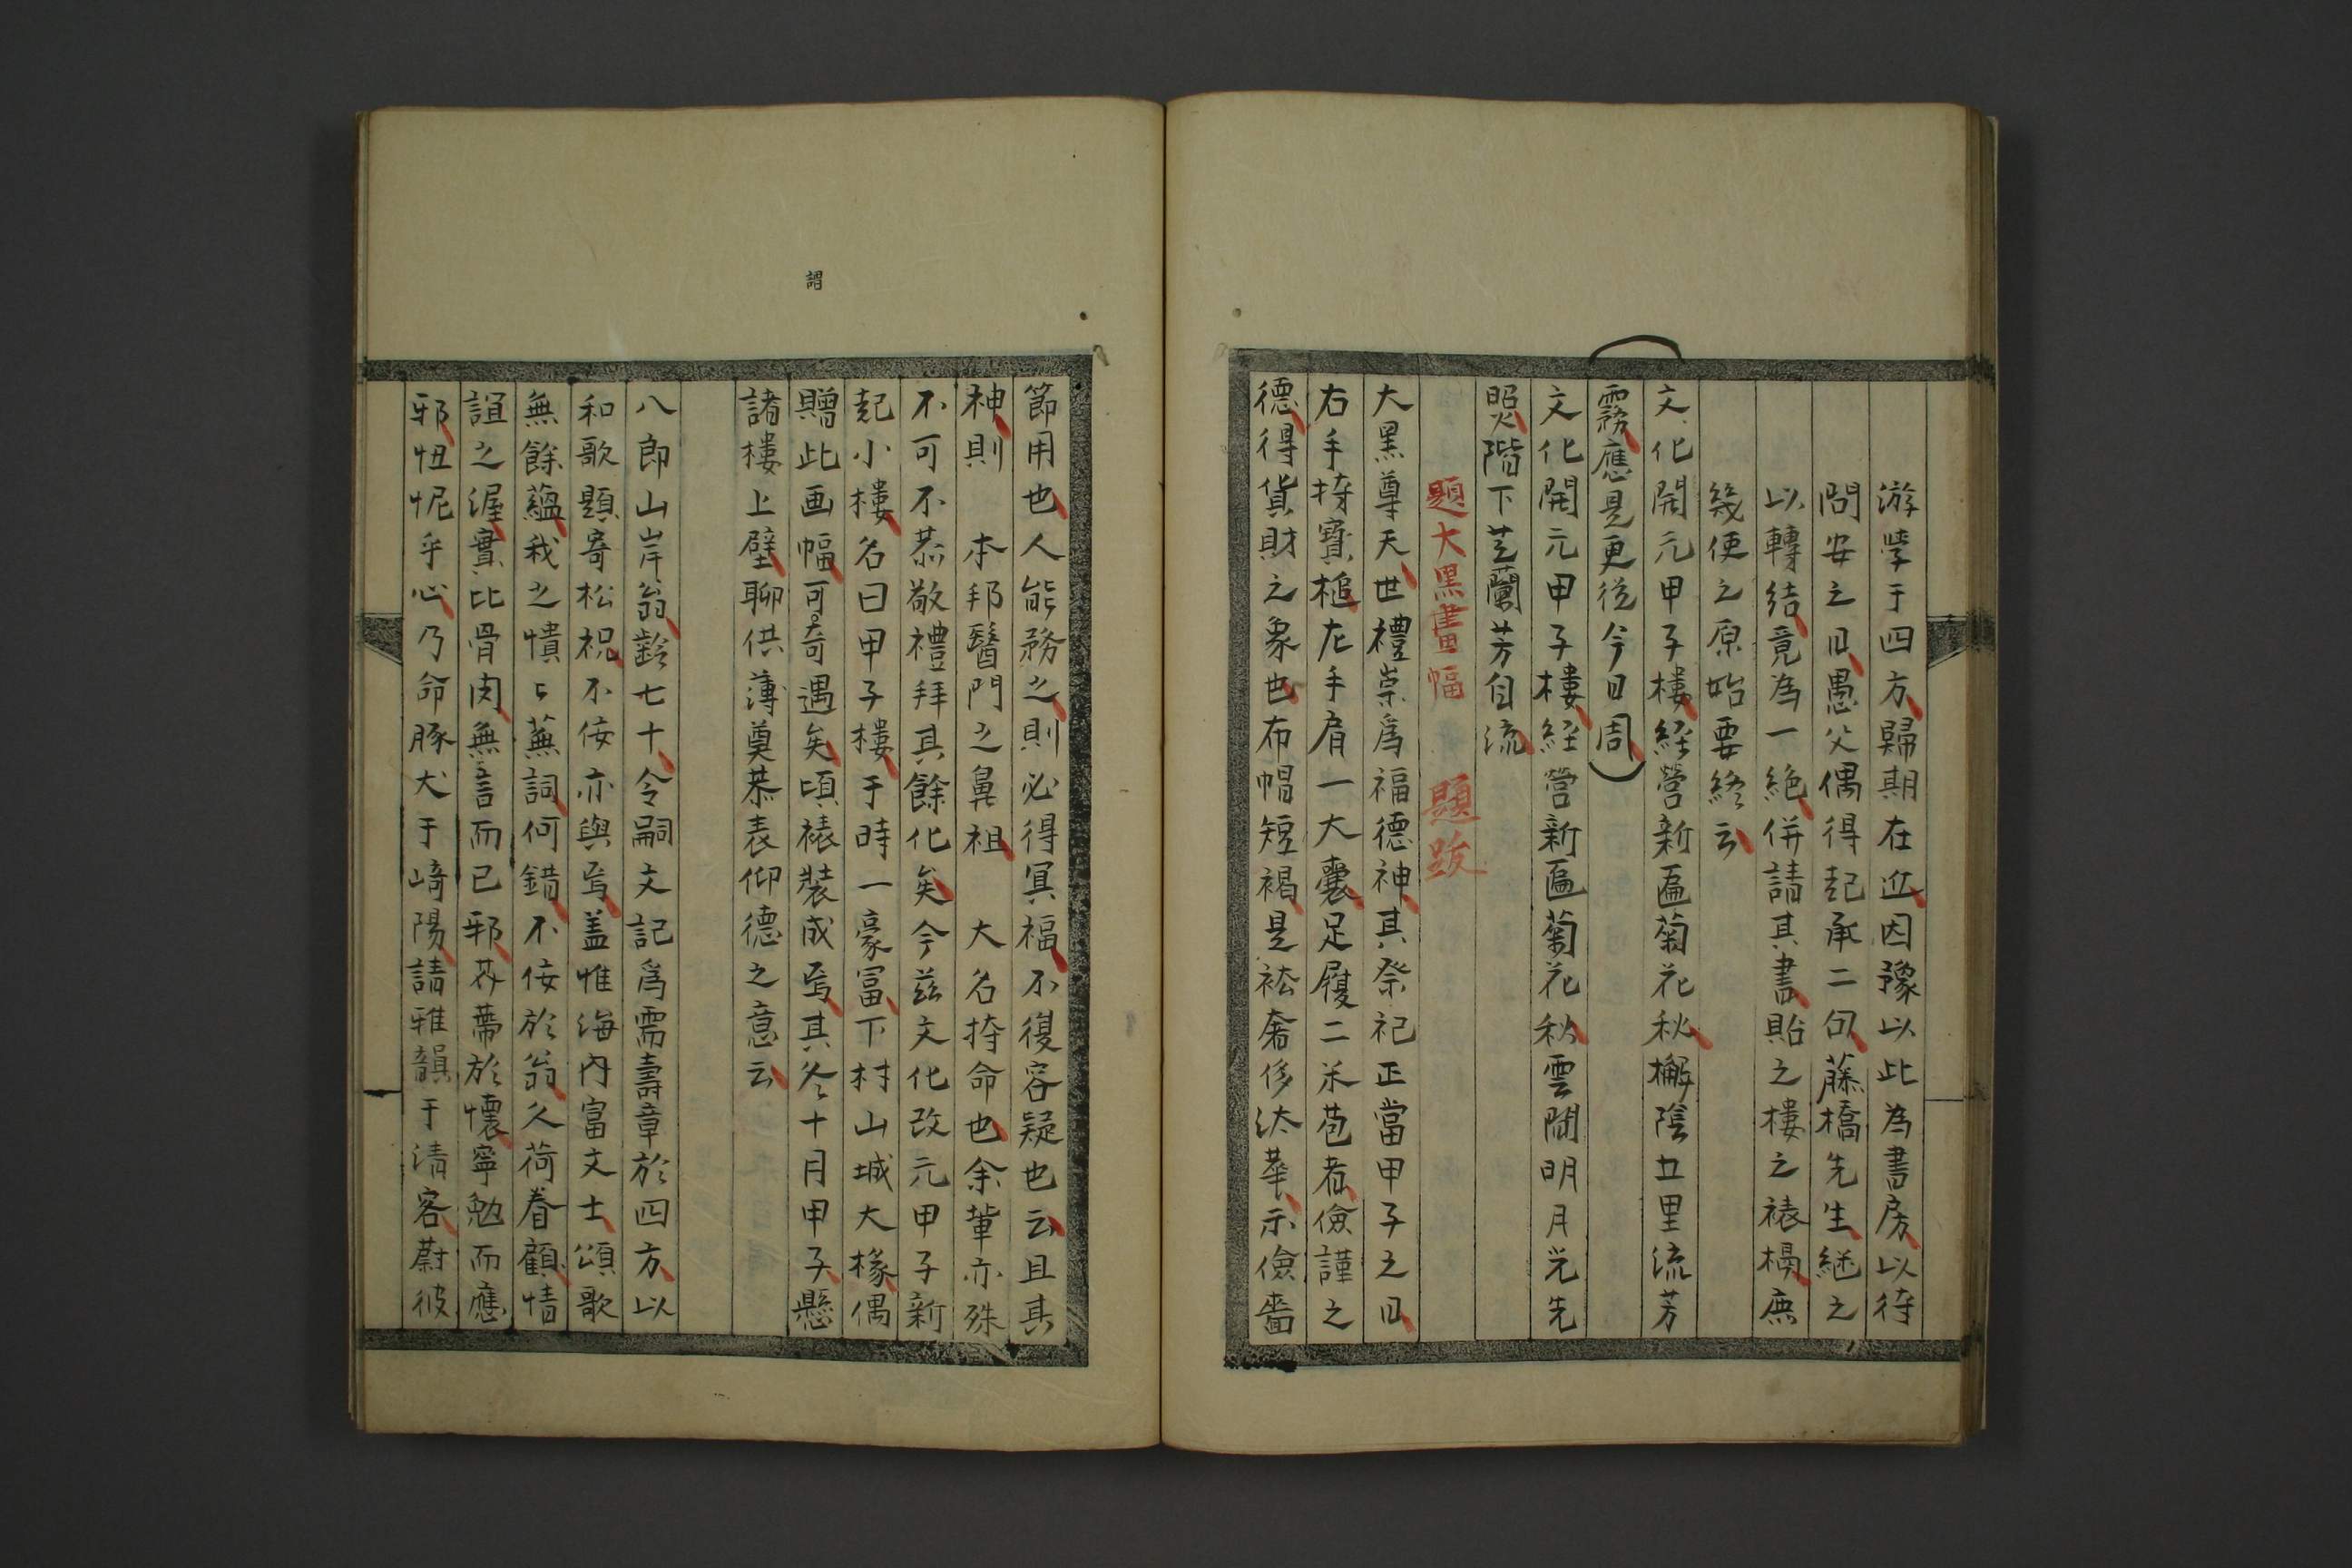 游學于四方歸期在近因豫以此為書房以待
問安之日愚父偶得起承二句藤橋先生継之
以轉結竟為一絶併請其書貼之樓之裱楊庶
幾便之原始要終云
文化開元甲子樓経營新匾菊花秋檞陰五里流芳
霧應是更從今日周
文化開元甲子樓経營新匾菊花秋雲閒明月光先
照階下芝蘭芳自流
題大黒畫幅　題跋
大黒尊天世禮崇為福德神其祭祀正當甲子之日
右手持寳槌左手肩一大囊足履二米苞者儉謹之
德得貨財之象也布帽短褐是袪奢侈汰華示儉嗇
節用也人能務之則必得冥福不復容疑也云且其
神則　本邦醫門之鼻祖　大名持命也余輩亦殊
不可不恭敬禮拜其餘化矣今茲文化改元甲子新
起小樓名曰甲子樓于時一豪富下村山城大椽偶
贈此画幅可奇遇矣頃裱裝成焉其冬十月甲子懸
謂
諸樓上壁聊供薄奠恭表仰德之意云
八郎山岸翁齡七十令嗣文記為需壽章於四方以
和歌題寄松祝不佞亦與焉盖惟海内富文士頌歌
無餘蘊我之憒々蕪詞何錯不佞於翁久荷眷顧情
誼之渥實比骨肉無言而已邪芥蔕於懷寧勉而應
邪忸怩乎心乃命豚犬于﨑陽請雅韻于清客蔚彼